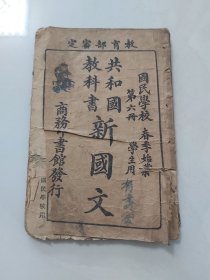 教育部審定
國民學校
春季始業
學生用
第六冊
共和國
教科書
新國文
商務印書館發行